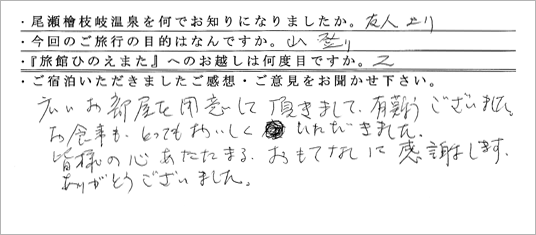 ・尾瀬檜枝岐温泉を何でお知りになりましたか。友人より
・今回のご旅行の目的はなんですか。山登り
・『旅館ひのえまた』へのお越しは何度目ですか。2
・ご宿泊いただきましたご感想・ご意見をお聞かせ下さい。
広いお部屋を用意して頂きまして、有難うございました。
お食事も、とってもおいしくいただきました。
皆様の心あたたまる、おもてなしに感謝します。
ありがとうございました。